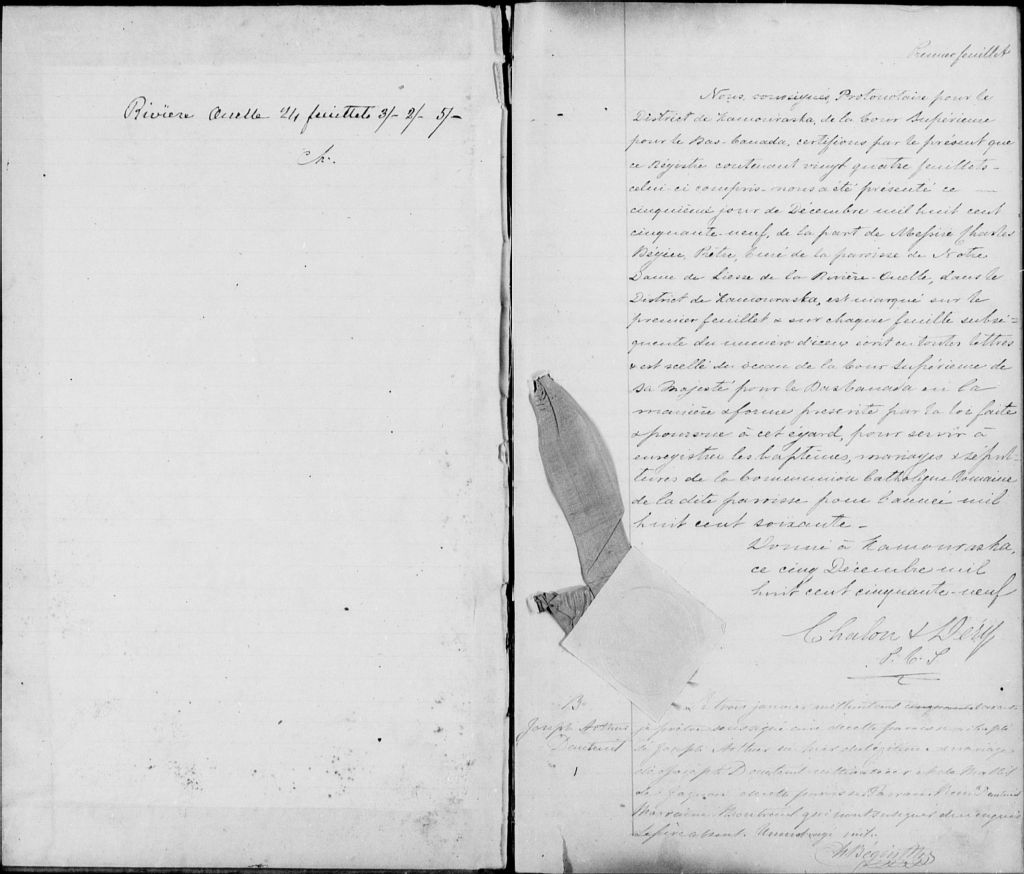 Rivière Ouelle 24 feuillets 3/- 2/- 5/-
Ch.
Premier feuillet
Nous, soussignés, Protonotaire pour le
District de Kamouraska, de la Cour Supérieure
pour le Bas-Canada, certifions par le présent que
ce Régistre contenant vingt quatre feuillets -
celui-ci compris - nous a été présenté ce —
cinquième jour de Décembre mil huit cent
cinquante-neuf, de la part de Messire Charles
Bégin, Prêtre, Curé de la paroisse de Notre
Dame de Liesse de la Rivière-Ouelle, dans le
District de Kamouraska, est marqué sur le
premier feuillet & sur chaque feuille subsé-
quente du numéro d'iceux écrit en toutes lettres
& est scellé du sceau de la Cour Supérieure de
Sa Majesté pour le Bas Canada en la
manière & forme prescrite par la loi faite
& pourvue à cet égard, pour servir à
enregistrer les baptêmes, mariages & sépul-
tures de la Communion Catholique Romaine
de la dite paroisse pour l'année mil
huit cent soixante. -
Donné à Kamouraska,
ce cinq Décembre mil
huit cent cinquante-neuf
Chalou & Déry
P. C. S
B.
Joseph Arthur
1
Le trois janvier mil huit cent soixante
je prêtre soussigné curé de cette paroisse ai baptisé
Joseph Arthur né hier du légitime mariage
de Joseph cultivateur et de
Gagnon de cette paroisse. Parrain
Marraine qui ont
Le père absent.
Chs Bégin Ptre